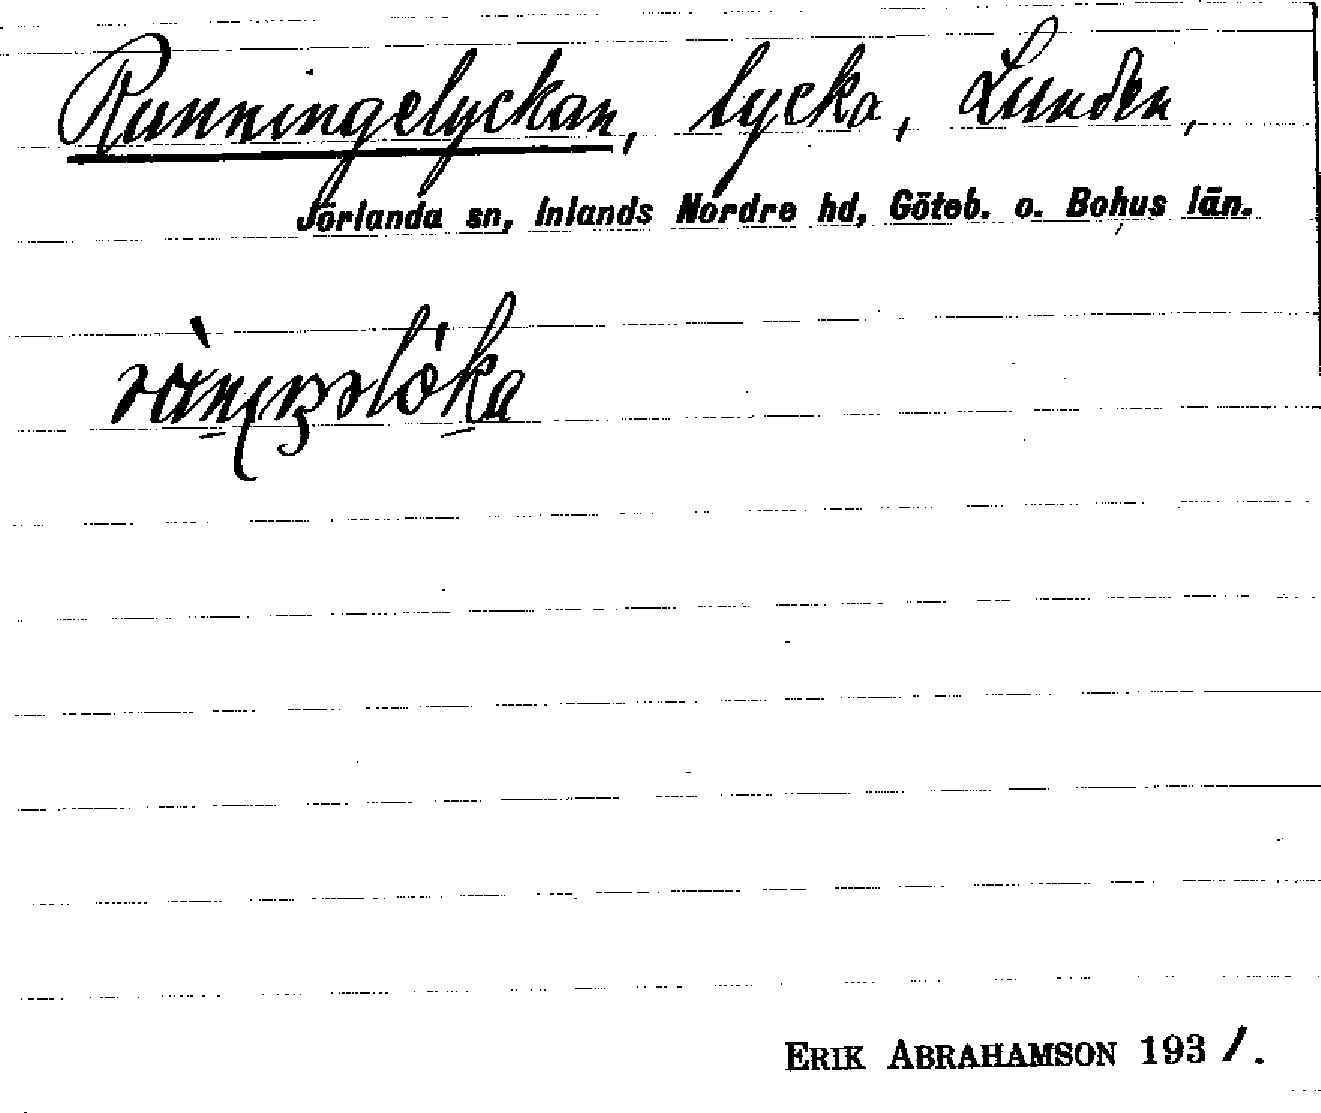 Runningelyckan, lycka, Lunden,
Jörlanda sn, Inlands Nordre hd, Göteb. o. Bohus län.
ERIK ABRAHAMSON 1931.